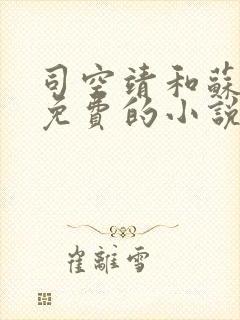 司空靖和蘇
免費的小說
崔離雪